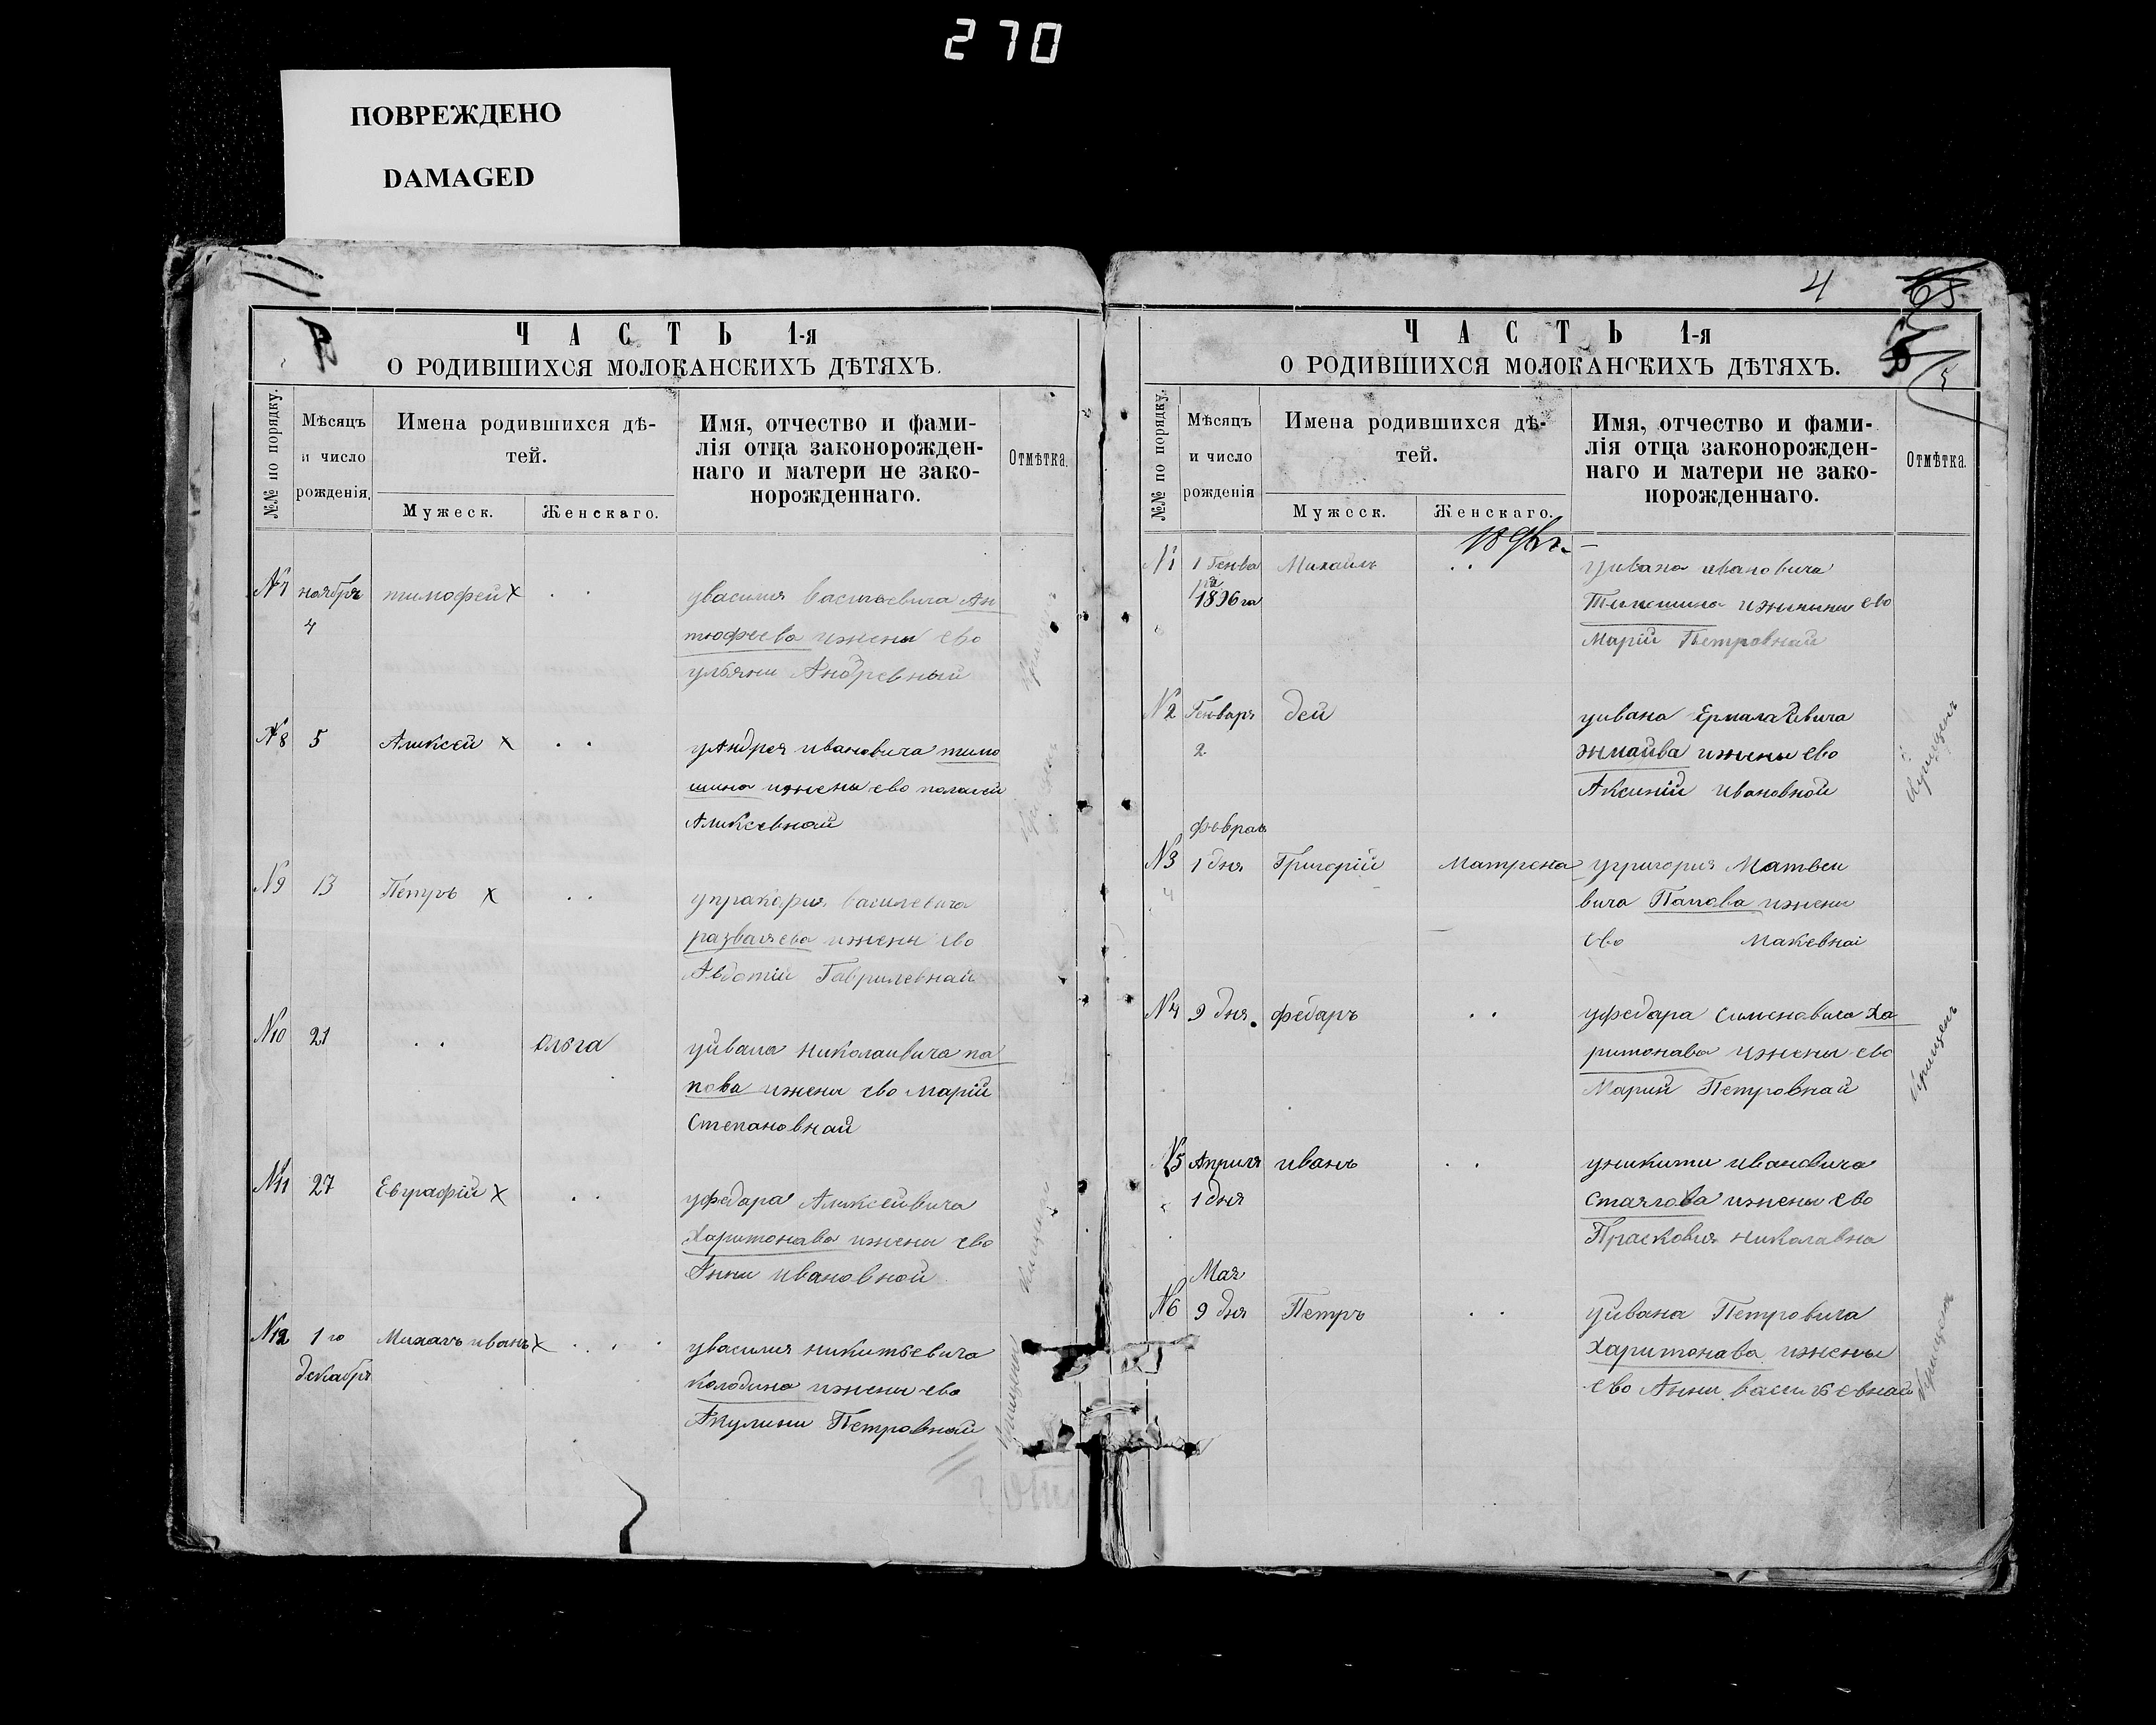 270
ПОВРЕЖДЕНО
DAMAGED
ЧАСТЬ 1-я
О РОДИВШИХСЯ МОЛОКАНСКИХЪ ДѢТЯХЪ.
№№ по порядку.
Мѣсяцъ и число рожденія.
Имена родившихся дѣ-
тей.
Мужеск.
Женскаго.
Имя, отчество и фами-
лія отца законорожден-
наго и матери не зако-
норожденнаго.
Отмѣтка.
№7 ноября тимофей х увасилия васильевича Ан
4 тюфеева ижены ево
ульяни Андревный
№8 5 Аликсей х уАндрея ивановича тимо
шина ижены ево палагей
Аликсевнай
№9 13 Петръ х упракофия василевича
разваляева ижены ево
Авдотий Гаврилевнай
№10 21 ольга уйвана николаивича па
пова ижени ево марiй
Степановнай
№11 27 Евграфiй х уфедара Аликсейвича
Харитонава ижени ево
Анни ивановной
№12 1го иванъ х увасилия никитьевича
декабря колодина ижени ево
Акулини Петровнай
4
65
5
ЧАСТЬ 1-я
О РОДИВШИХСЯ МОЛОКАНСКИХЪ ДѢТЯХЪ.
№№ по порядку.
Мѣсяцъ и число рожденія
Имена родившихся дѣ-
тей.
Мужеск.
Женскаго.
Имя, отчество и фами-
лія отца законорожден-
наго и матери не зако-
норожденнаго.
Отмѣтка.
№1 1 Генва Михаилъ уивана ивановича
ря
1896го ево
Марiй Петровнай
№2 Генваря уивана
2 ижены ево
Аксинiй ивановной
феврал
№3 1 дня Григорiй Матрена угригория Матвеи
вича Папова ижени
ево Макевнаi
№4 9 дня федаръ уфедара Сименовича Ха
ритонава ижены ево
Марий Петровнай
№5 Априля иванъ уникити ивановича
1 дня ижены ево
Прасковия николавна
Мая
№6 9 дня Петръ уйвана Петровича
Харитонава ижены
ево Анни васильевнай